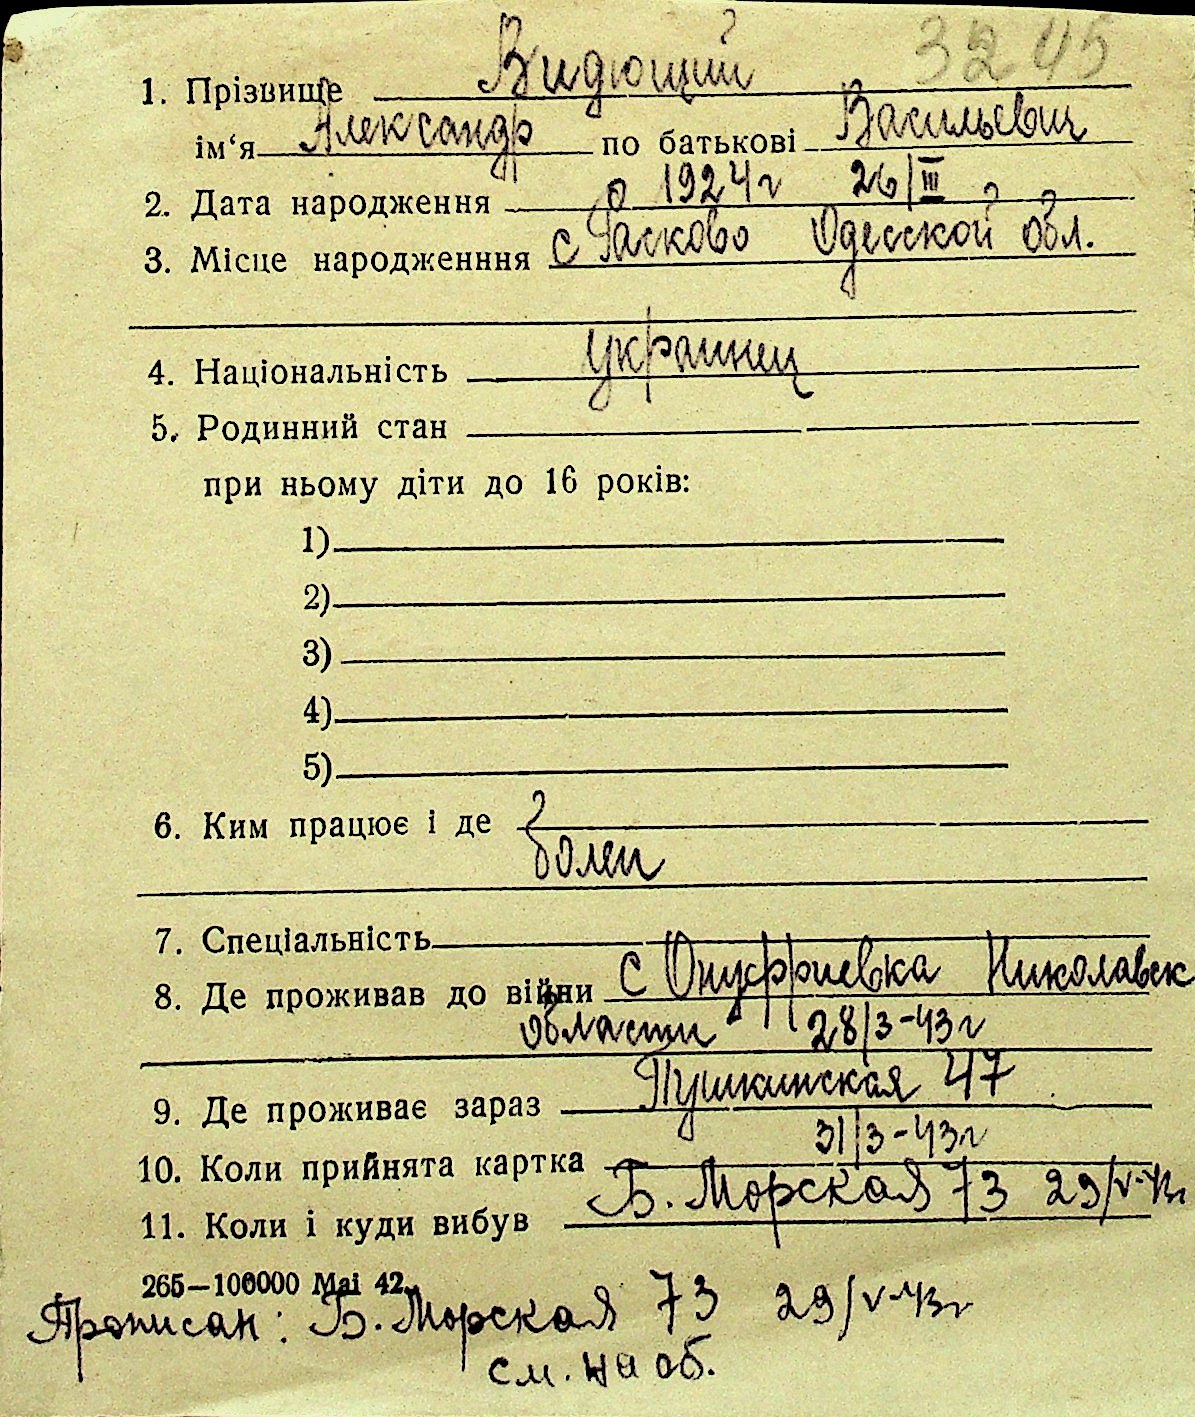 3245
1. Прізвище Видющий
ім‘я Александр по батькові Васильевич
2. Дата народження 1924г 26/III
3. Місце народженння с Расково Одесской обл.
4. Національність украинец
5. Родинний стан
при ньому діти до 16 років:
1)
2)
3)
4)
5)
6. Ким працює і де
болен
7. Спеціальність
8. Де проживав до війни с Онуфриевка Николаевск
области 28/3-43г
9. Де проживає зараз Пушкинская 47
31/3-43г
10. Коли прийнята картка
11. Коли і куди вибув Б. Морская 73 29/V-43г
265—100000 Mai 42.
Прописан: Б. Морская 73 29/V-43г
см. на об.